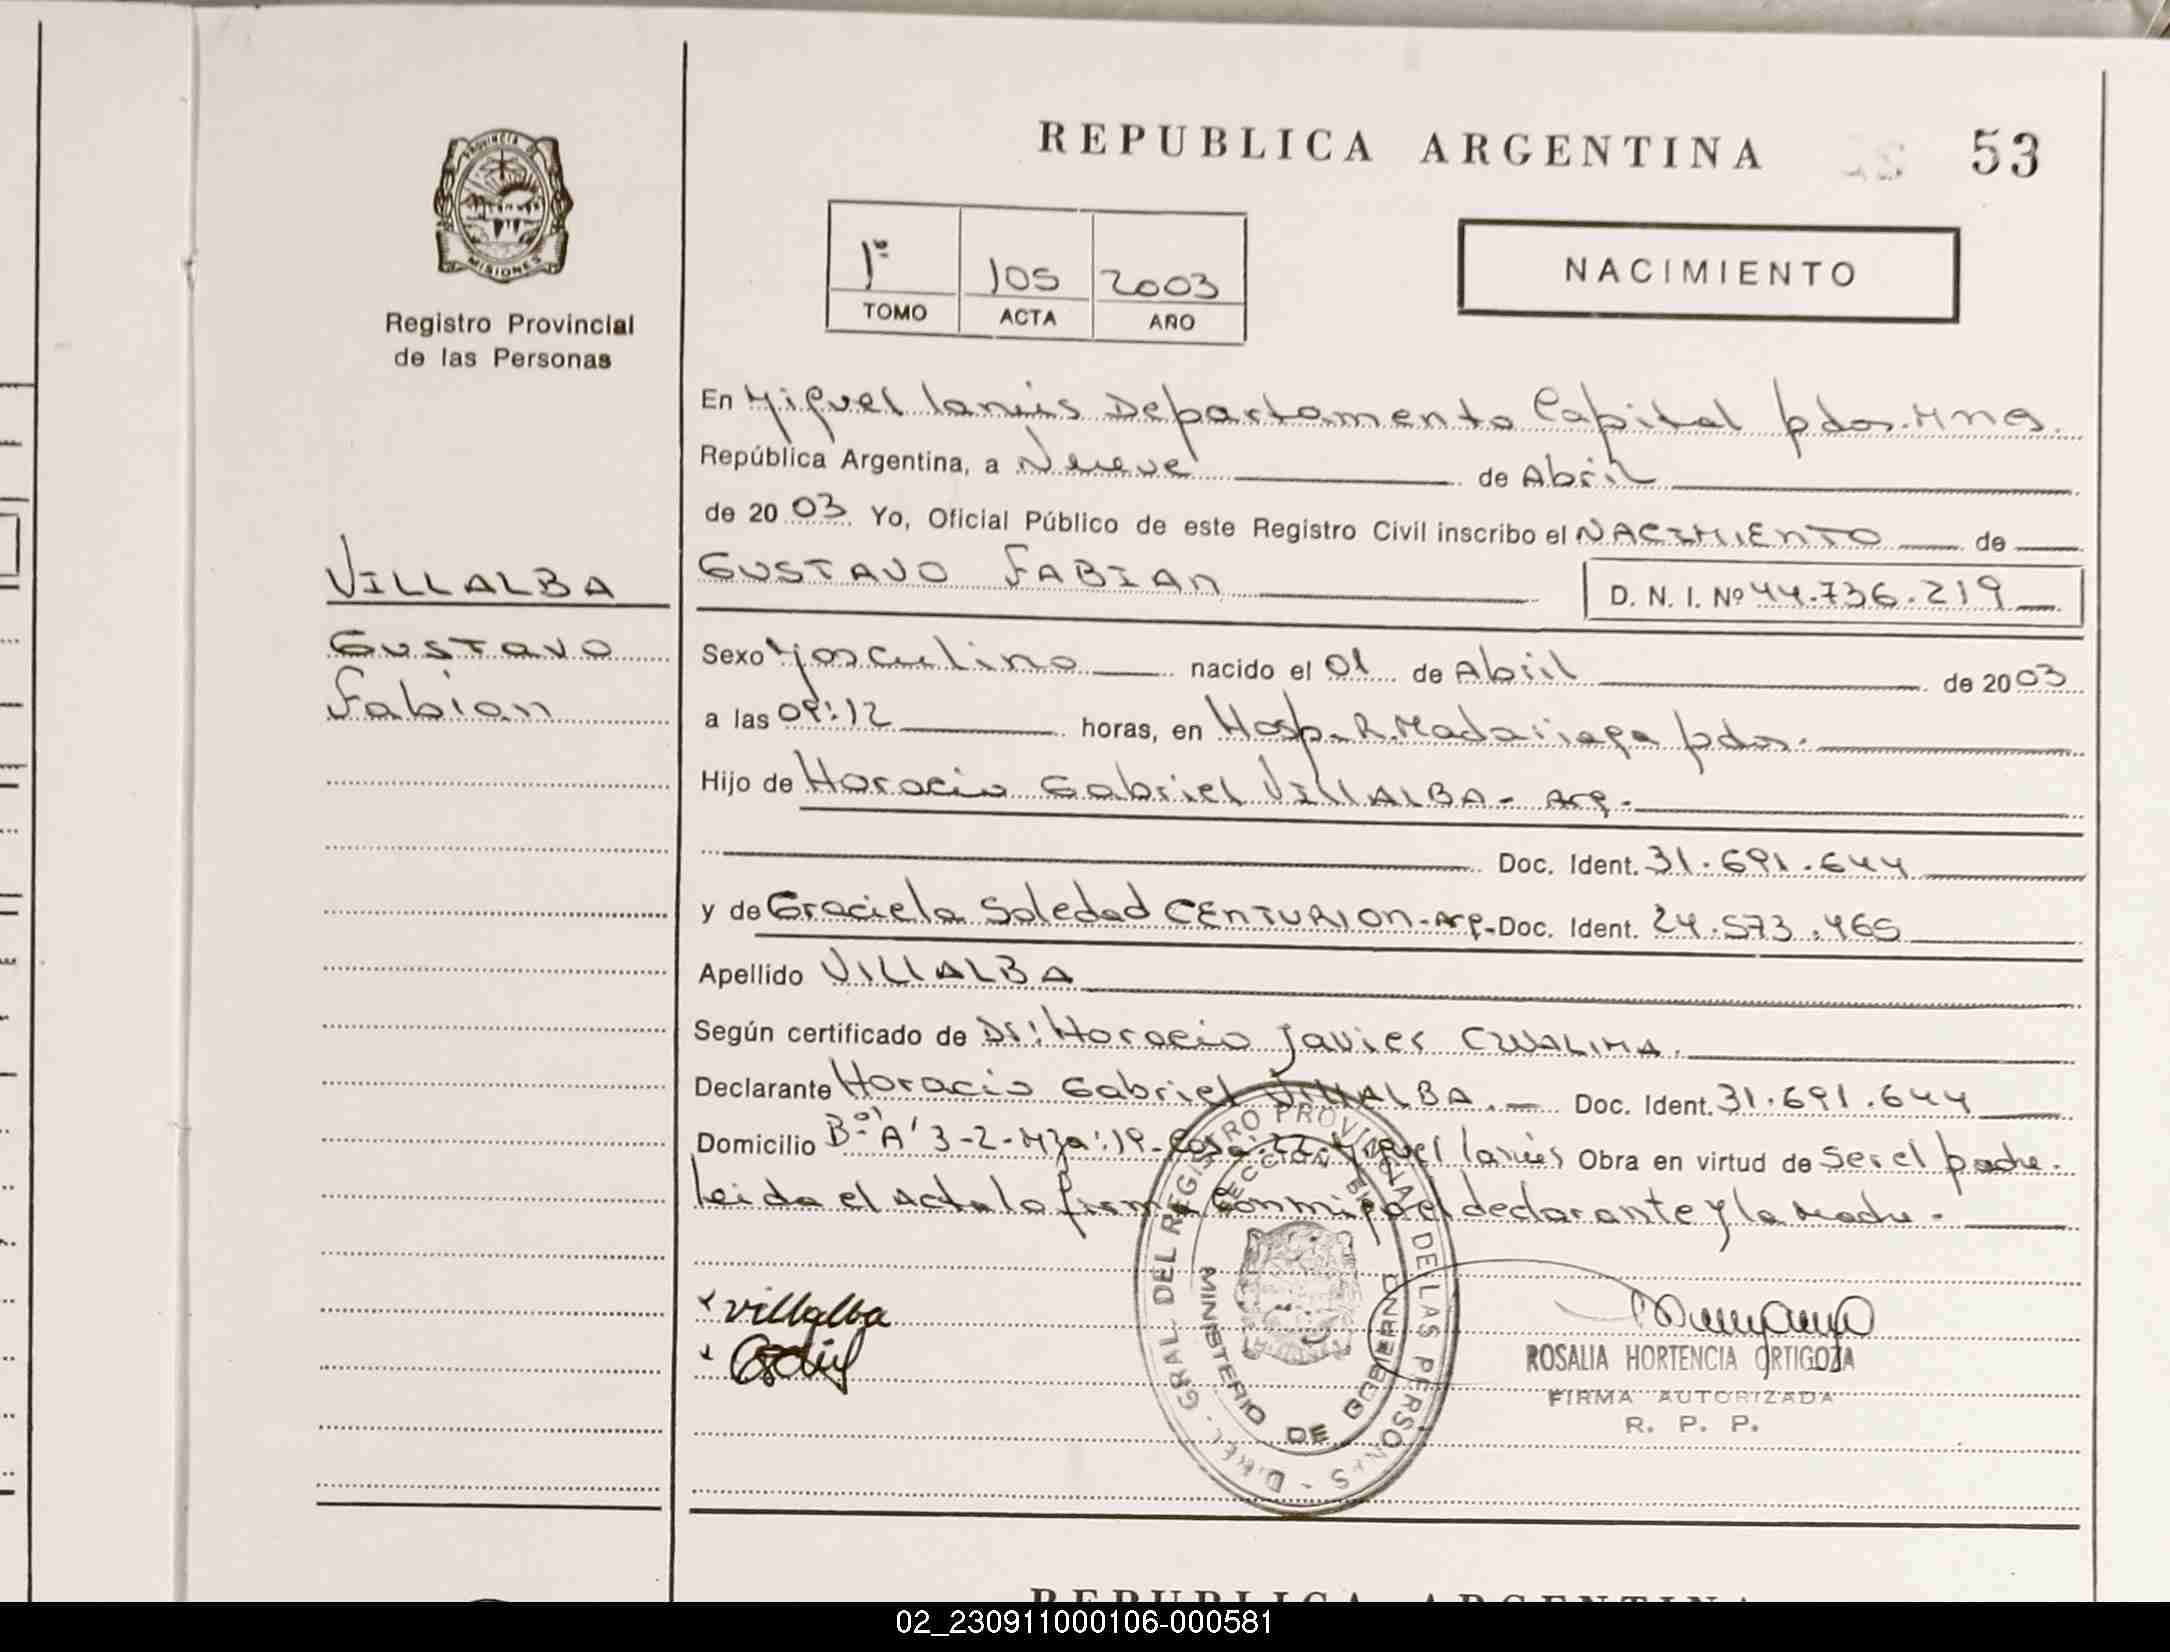 REPUBLICA ARGENTINA 53
PROVINCIA DE
MISIONES
Registro Provincial
de las Personas
1º 105 2003
TOMO ACTA AÑO
NACIMIENTO
En Miguel Lanús Departamento Capital pdas. Mnes.
República Argentina, a Nueve de Abril
de 20 03 Yo, Oficial Público de este Registro Civil inscribo el NACIMIENTO de
VILLALBA
Gustavo
Fabian
GUSTAVO FABIAN D. N. I. Nº 44.736.219
Sexo Masculino nacido el 01 de Abril de 20 03
a las 09:12 horas, en Hosp. R. Madariaga pdas.
Hijo de Horacio Gabriel VILLALBA - Arg.
Doc. Ident. 31.691.644
y de Graciela Soledad CENTURION - Arg. Doc. Ident. 24.573.465
Apellido VILLALBA
Según certificado de Dr: Horacio Javier
Declarante Horacio Gabriel VILLALBA. Doc. Ident. 31.691.644
Domicilio Bº "A" 3-2- Mza: 19- Casa: 22- Miguel Lanús Obra en virtud de ser el padre.
Leida el Acta la firma conmigo el declarante y la Madre.
villalba
DEL REGISTRO PROVINCIAL DE LAS PERSONAS
SECCION
MINISTERIO DE GOBIERNO
ROSALIA HORTENCIA ORTIGOZA
FIRMA AUTORIZADA
R. P. P.
REPUBLICA ARGENTINA
02_230911000106-000581